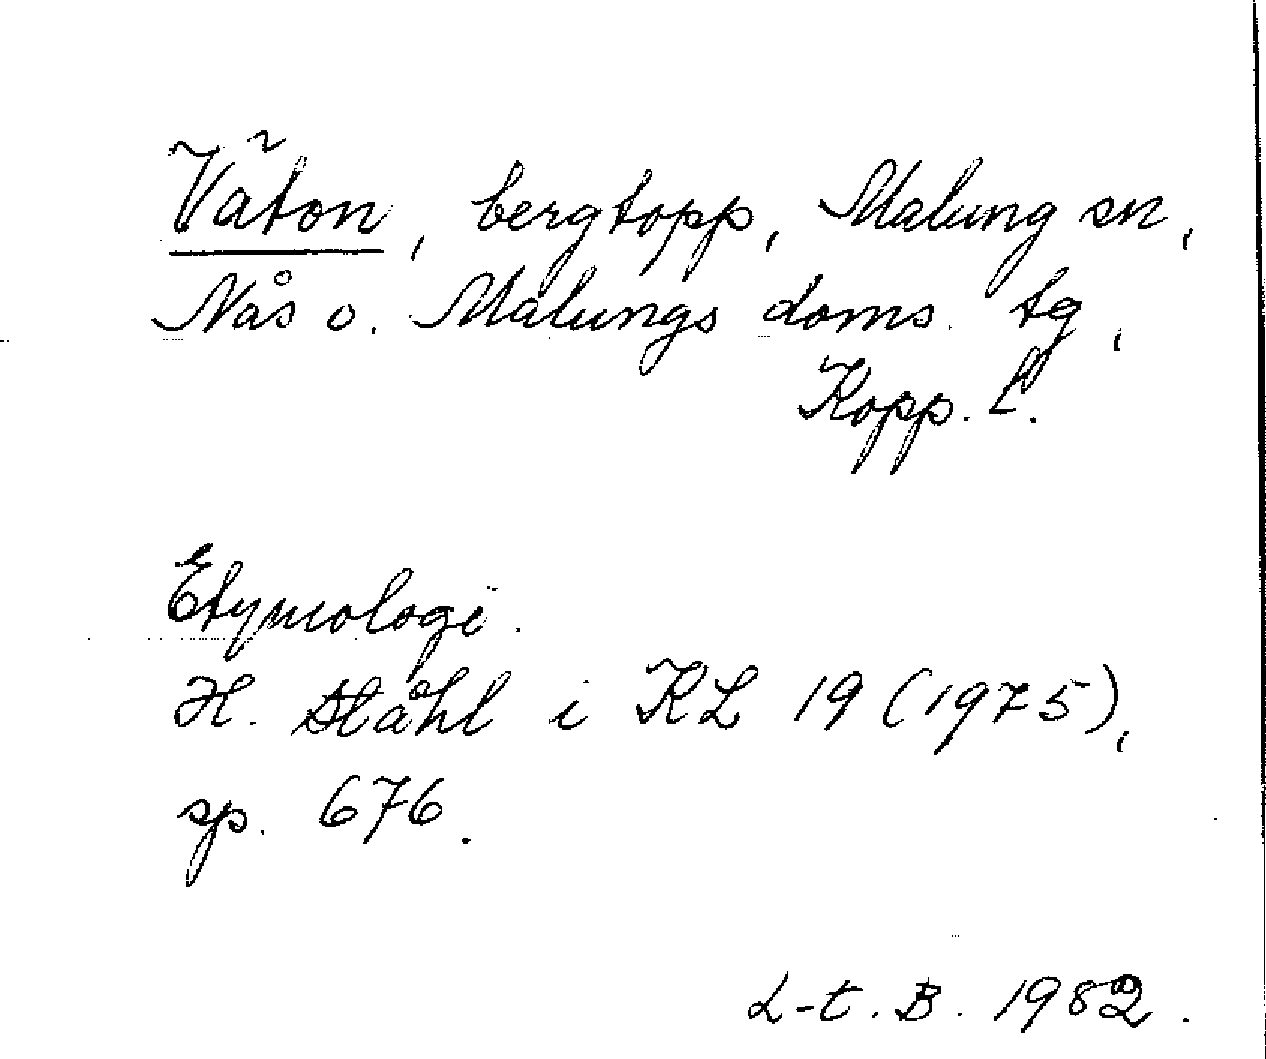 Väton, bergtopp, Malung sn,
Nås o. Malungs doms. tg,
Kopp. l.
Etymologi.
H. Ståhl i KL 19 (1975),
sp. 676.
L-t. B. 1982.